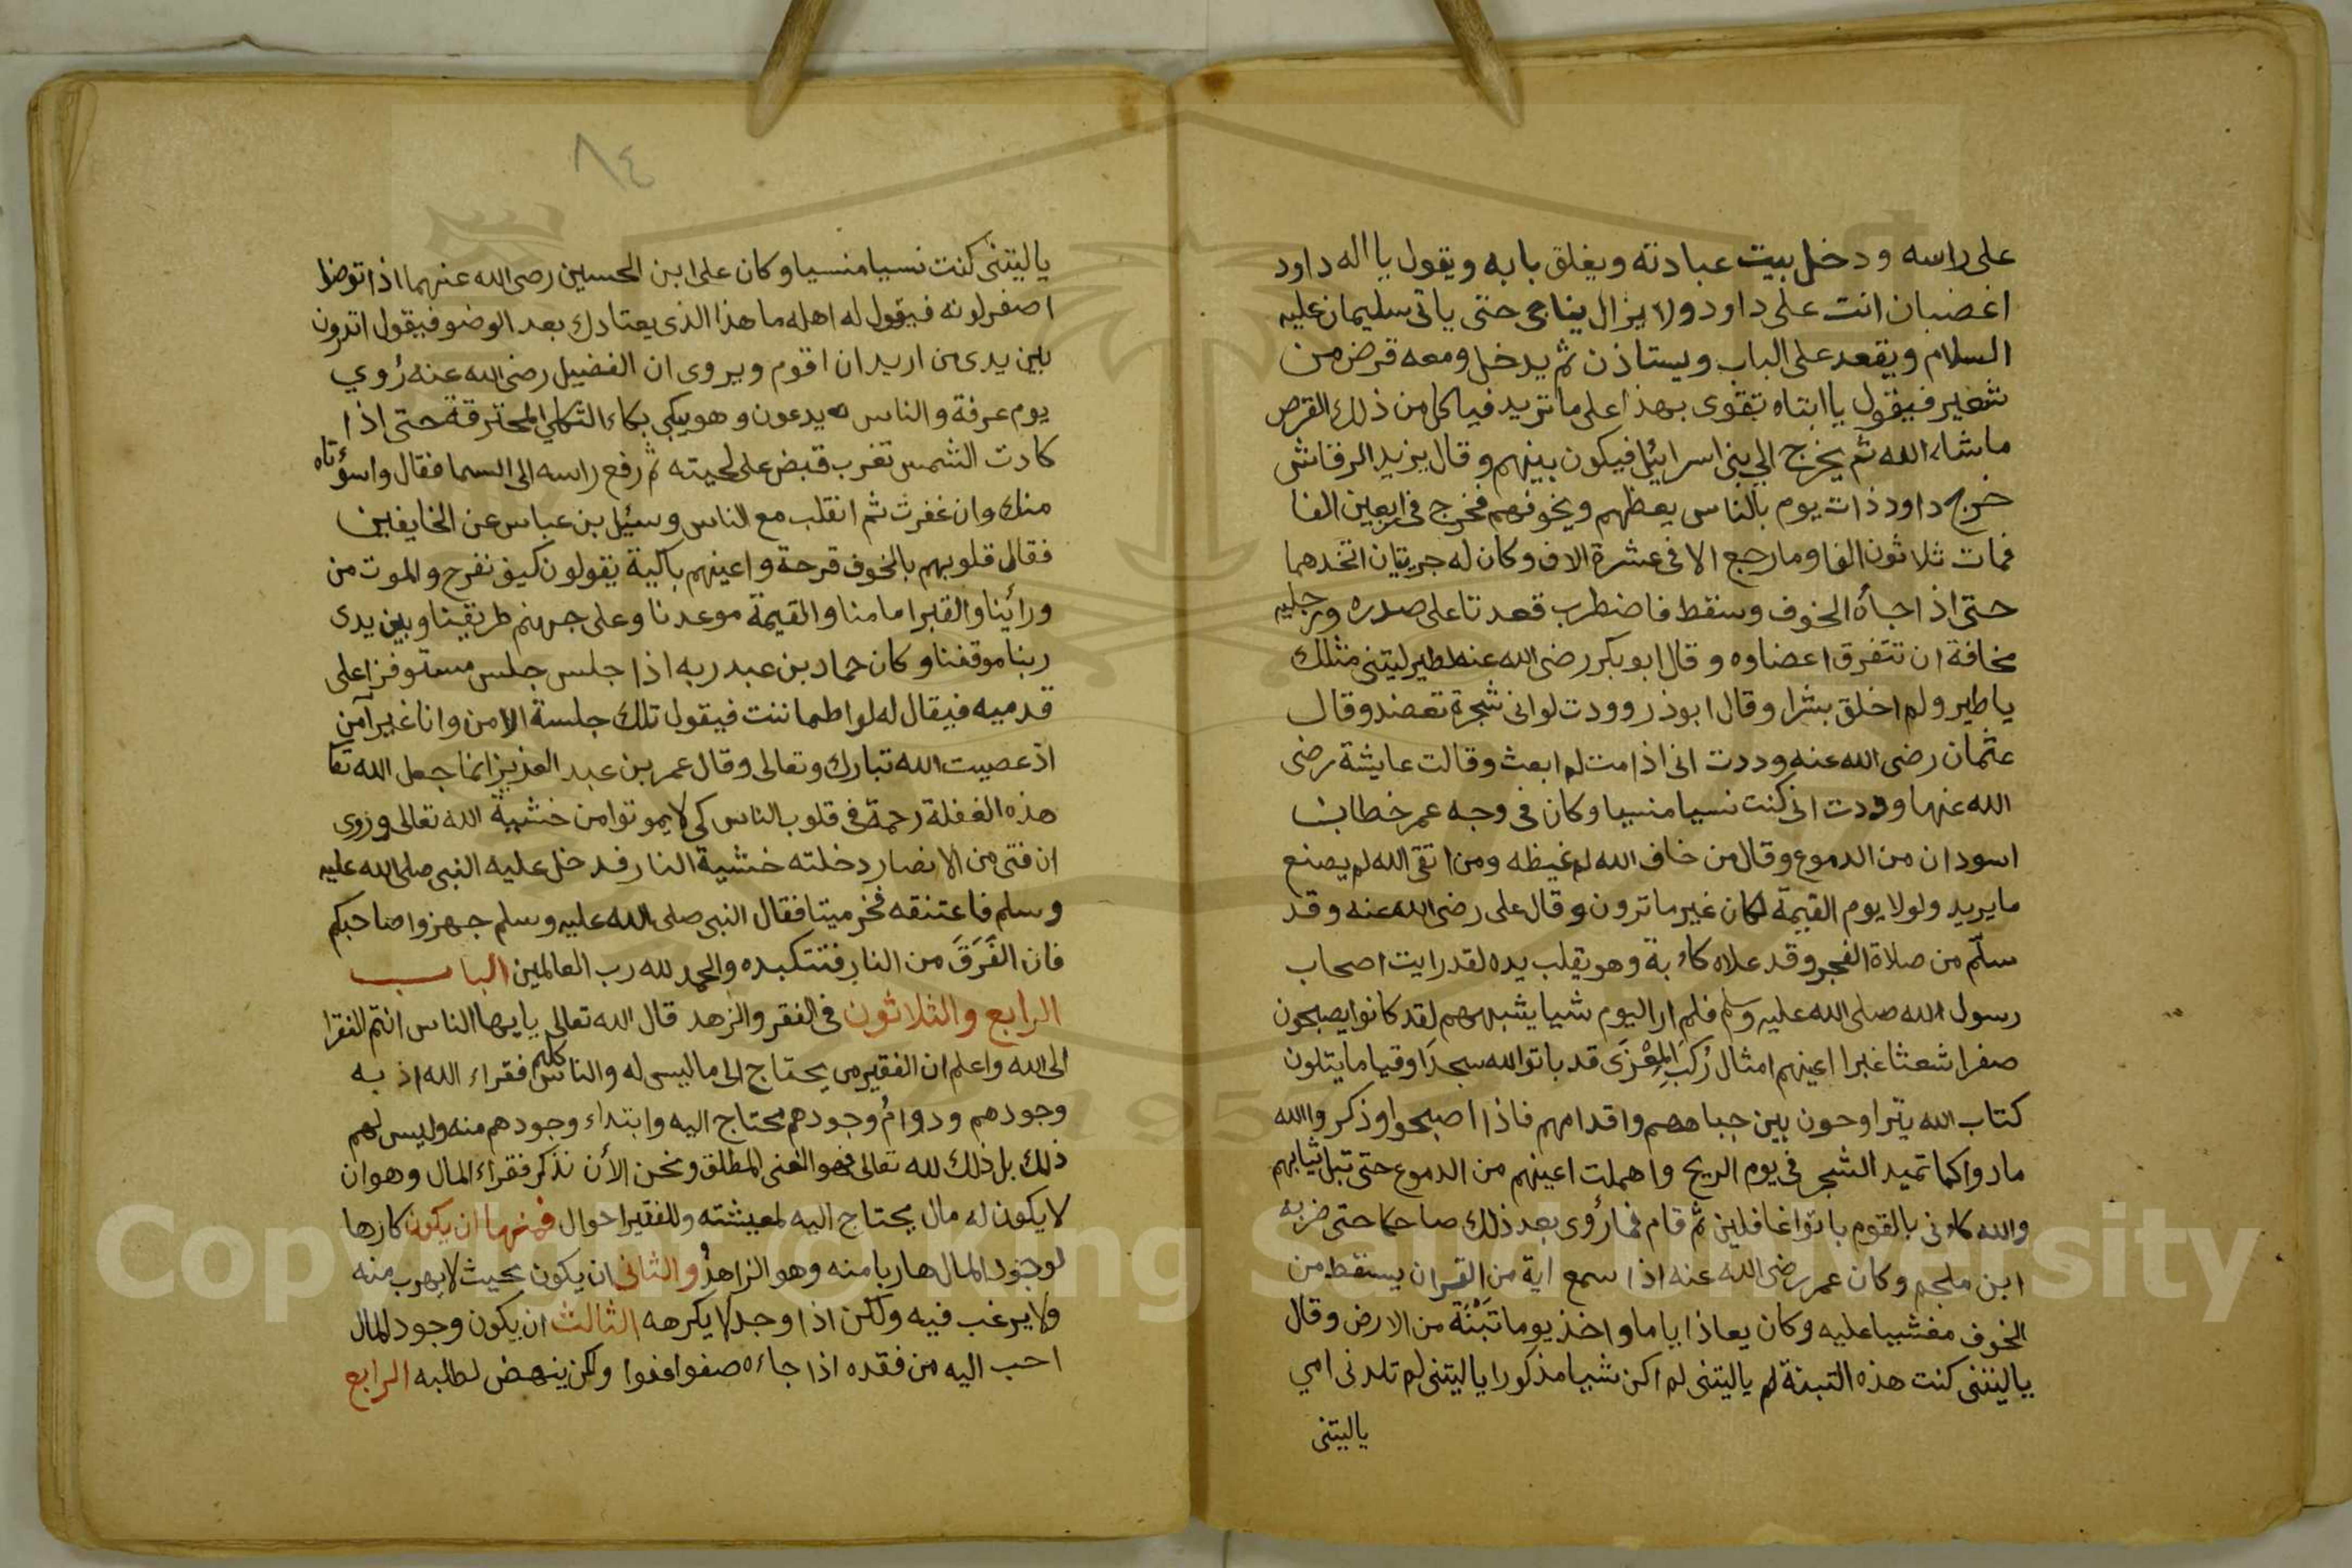 على راسه ودخل بيت عبادته ويغلق بابه ويقول يا اله داود
اغضبان انت على داود ولا يزال يناجى حتى ياتى سليمان عليه
السلام ويقعد على الباب ويستاذن ثم يدخل ومعه قرض من
شعير فيقول يا ابتاه تقوى بهذا على ما تريد فياكل من ذلك القرص
ماشاء الله ثم يخرج الى بنى اسرائيل فيكون بينهم وقال يزيد الرقاشى
خرج داود ذات يوم بالناس يعظهم ويخوفهم فخرج فى اربعين الفا
فمات ثلاثون الفا وما رجع الا فى عشرة الاف وكان له جريتان اتخدهما
حتى اذا جاٴه الخوف وسقط فاضطرب قعدتا على صدره ورجليه
مخافة ان تتفرق اعضاوه وقال ابو بكر رضى الله عنه لطير ليتنى مثلك
يا طير ولم اخلق بشرا وقال ابو ذر وودت لوانى شجرة تعضد وقال
عثمان رضى الله عنه وددت انى اذا مت لم ابعث وقالت عايشة رضى
الله عنها وودت انى كنت نسيا منسيا وكان فى وجه عمر خطان
اسودان من الدموع وقال من خاف الله لم غيظه ومن اتقى الله لم يصنع
ما يريد ولولا يوم القيمة لكان غير ما ترون وقال على رضى الله عنه وقد
سلّم من صلاة الفجر وقد علاه كاٴبة وهو يقلب يده لقد رايت اصحاب
رسول الله صلى الله عليه وسلم فلم ار اليوم شيا يشبههم لقد كانوا يصبحون
صفرا شعثا غبرا اعينهم امثال رُكَبِ المِعْزَى قد باتوا لله سجدَا وقياما يتلون
كتاب الله يتراوحون بين جباههم واقدامهم فاذا اصبحوا وذكروا الله
مادوا كما تميد الشجر فى يوم الريح واهملت اعينهم من الدموع حتى تبل ثيابهم
والله كاٴنى بالقوم باتوا غافلين ثم قام فما رؤى بعد ذلك ضاحكا حتى ضربه
ابن ملجم وكان عمر رضى الله عنه اذا سمع اية من القران يسقط من
الخوف مغشيا عليه وكان يعاذ اياما واخذ يوما تَبْنَة من الارض وقال
ياليتنى كنت هذه التبنة لم ياليتنى لم اكن شيا مذكورا ياليتنى لم تلدنى امي
ياليتنى
٨٤
ياليتنى كنت نسيا منسيا وكان على ابن الحسين رضى الله عنهما اذا توضا
اصفر لونه فيقول له اهله ما هذا الذى يعتادك بعد الوضو فيقول اتدرون
بين يدى من اريد ان اقوم ويروى ان الفضيل رضى الله عنه رُوي
يوم عرفة والناس يدعون وهو يبكى بكاء الثكلى المحترقة حتى اذا
كادت الشمس تغرب قبض على لحيته ثم رفع راسه الى السما فقال واسؤتاه
منك وان غفرت ثم انقلب مع الناس وسئيل بن عباس عن الخايفين
فقال قلوبهم بالخوف قرحة واعينهم باكية يقولون كيف نفرح والموت من
ورائنا والقبر امامنا والقيمة موعدنا وعلى جهنم طريقنا وبين يدى
ربنا موقفنا وكان حماد بن عبد ربه اذا جلس جلس مستوفزا على
قدميه فيقال له لو اطماننت فيقول تلك جلسة الامن وانا غير آمن
اذ عصيت الله تبارك وتعالى وقال عمر بن عبد العزيز انما جعل الله تعا
هذه الغفلة رحمة فى قلوب الناس كى لا يموتوا من خشية الله تعالى وروى
ان فتى من الانصار دخلته خشية النار فدخل عليه النبى صلى الله عليه
وسلم فاعتنقه فخر ميتا فقال النبى صلى الله عليه وسلم جهزوا صاحبكم
فان الفَرَقَ من النار فتت كبده والحمد لله رب العالمين الباب
الرابع والثلاثون فى الفقر والزهد قال الله تعالى يايها الناس انتم الفقرا
الى الله واعلم ان الفقير من يحتاج الى ما ليس له والناس كلهم فقراء الله اذ به
وجودهم ودوامُ وجودهم محتاج اليه وابتداء وجودهم منه وليس لهم
ذلك بل ذلك لله تعالى فهو الغنى المطلق ونحن الاٴن نذكر فقراء المال وهو ان
لا يكون له مال يحتاج اليه لمعيشته وللفقير احوال فمنها ان يكون كارها
لوجود المال هاربا منه وهو الزاهدُ والثانى ان يكون بحيث لا يهرب منه
ولا يرغب فيه ولكن اذا وجد لا يكرهه الثالث ان يكون وجود المال
احب اليه من فقده اذا جاءه صفوا عفوا ولكن ينهض لطلبه الرابع
Copyright © King Saud University